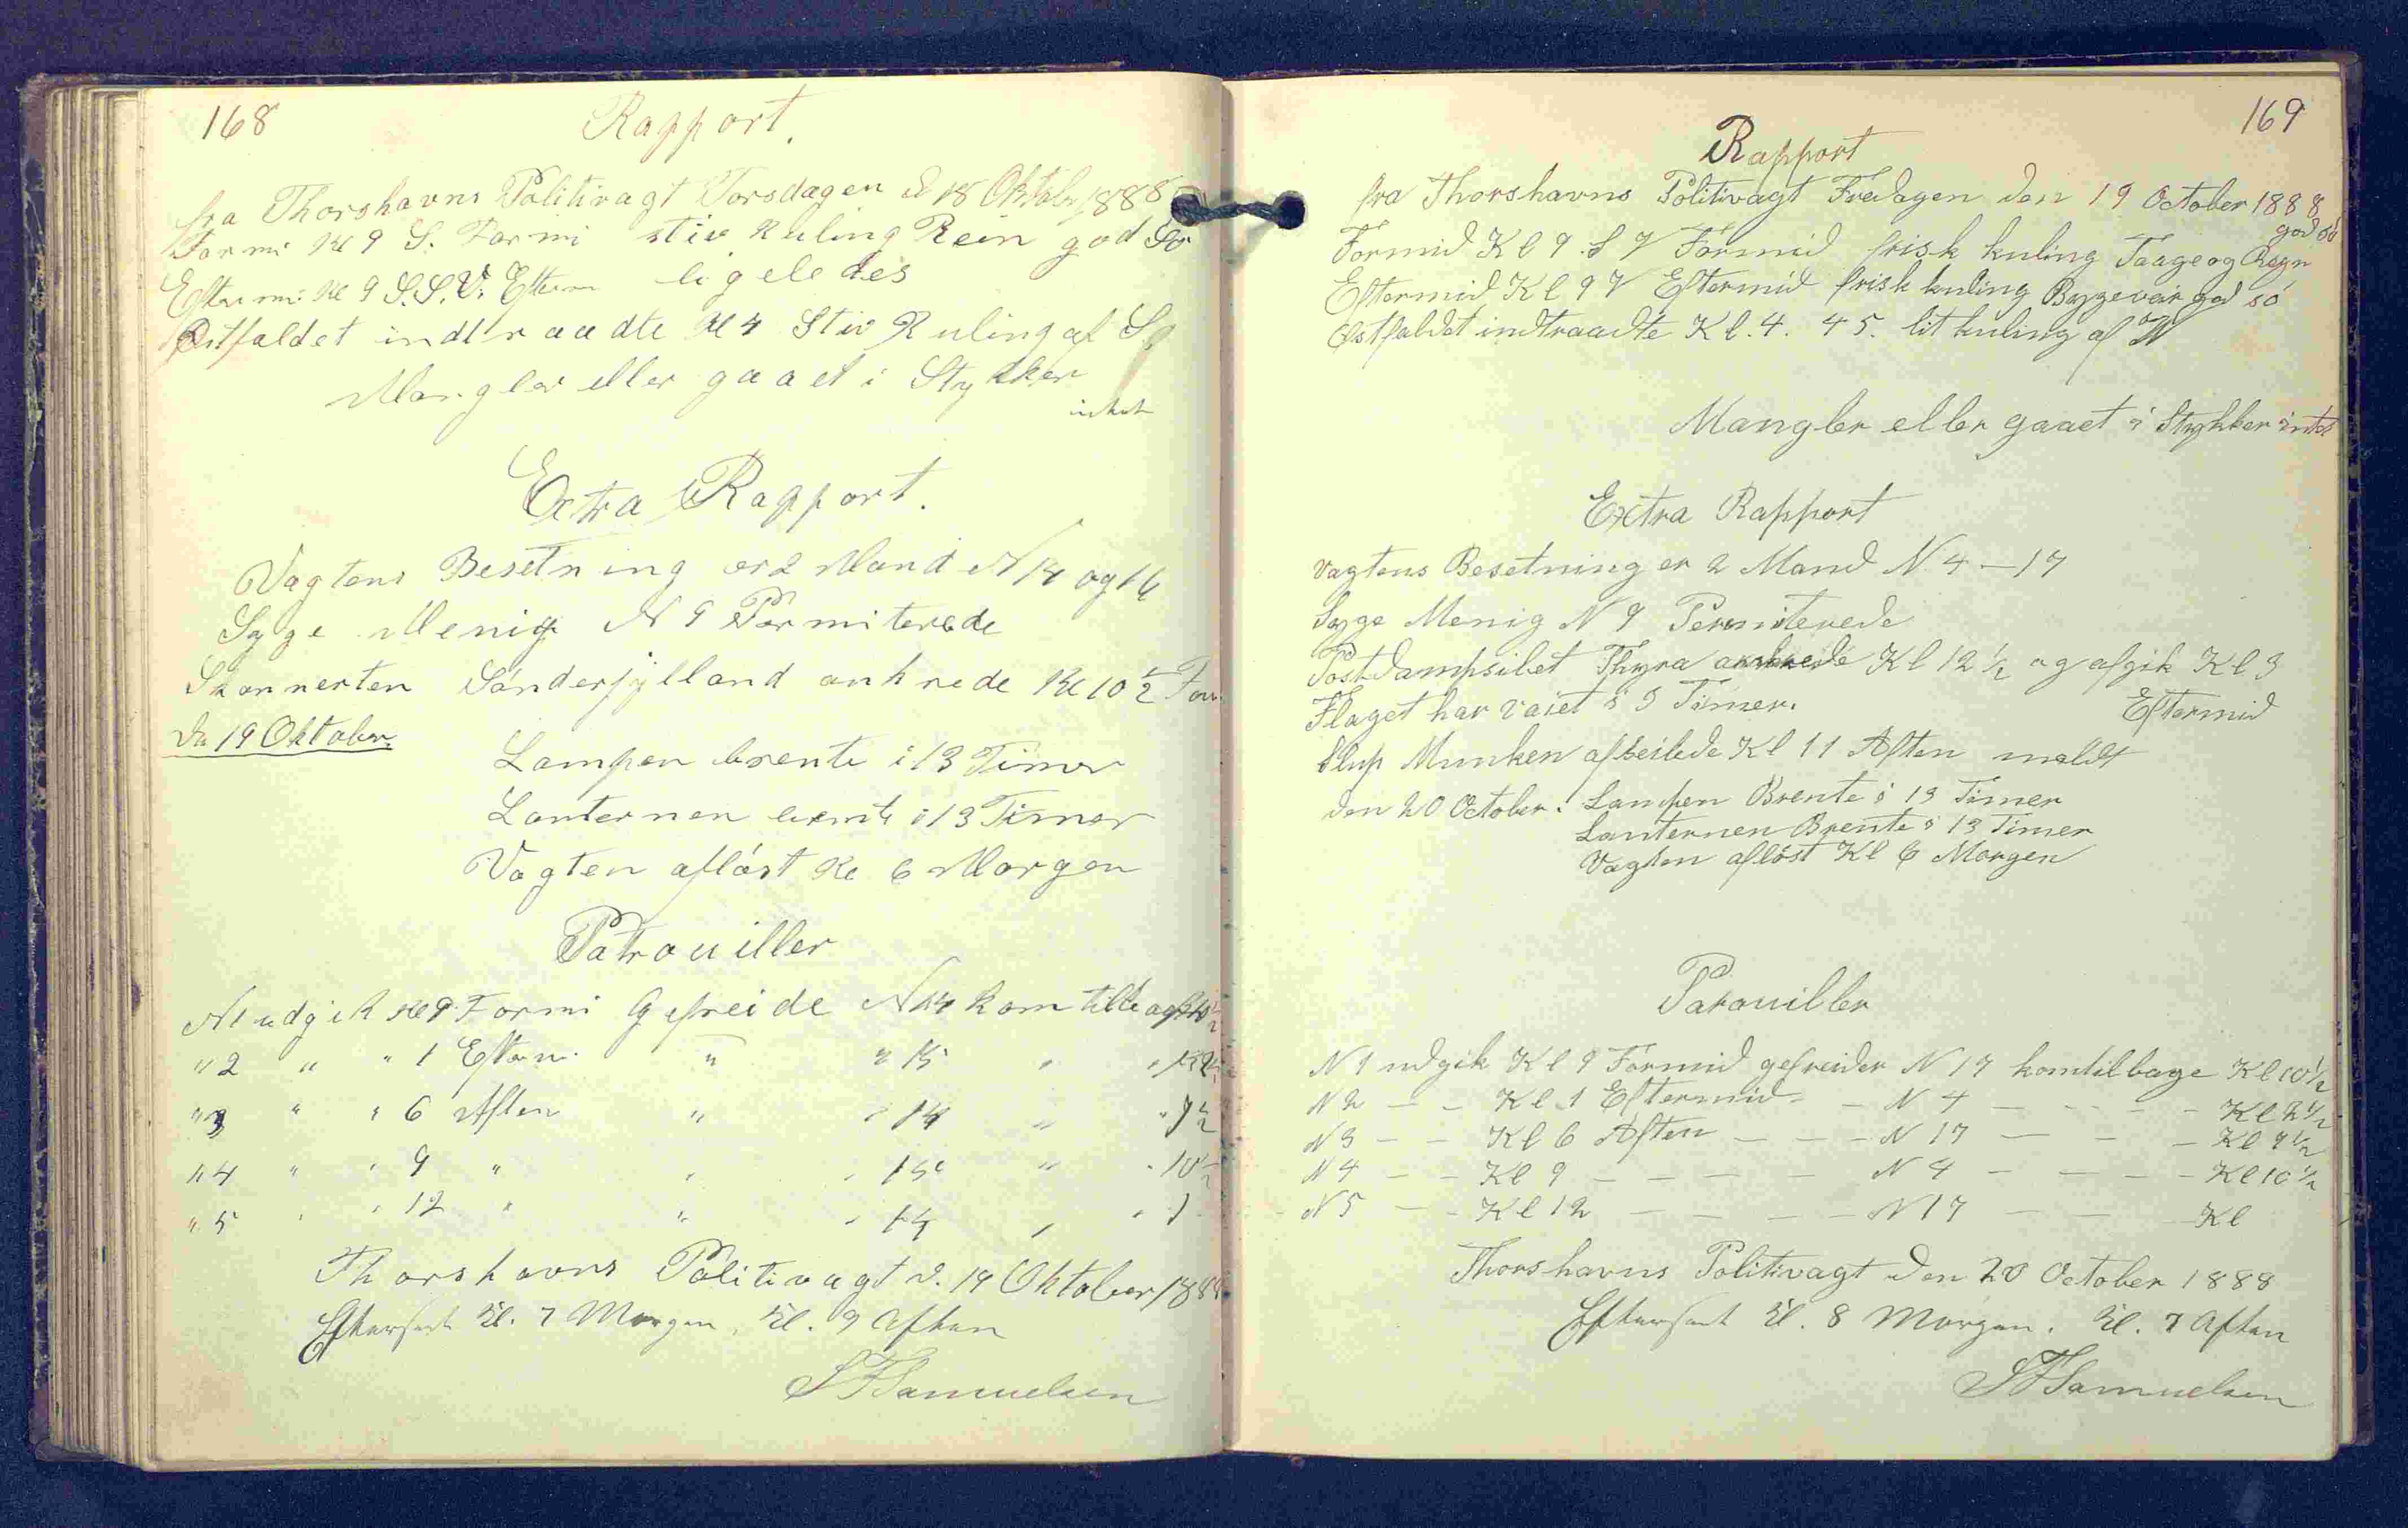 168
Rapport.
fra Thorshavns Politivagt Torsdagen d 18 Oktober 1888
Formi Kl 9 S. Formi stiv Kuling Rein god Sø
Eftermi Kl 9 S.S.V. Efterm ligeledes
Østfaldet indtraadte Kl 4 Stiv Kuling af S
Mangler eller gaaet i Stykker
intet
Extra Rapport.
Vagtens Besetning er 2 Mand N 14 og
Syge Menig N 9 Permiterede
Skonnerten Sønderjylland ankrede Kl 10 1/2 For
Dn 19 Oktober.
Lampen brente i 13 Timer
Lanternen brente i 13 Timer
Vagten afløst Kl 6 Morgen
Patrouiller
N 1 udgik Kl 9 Formi Gefreide N 14 kom tilbage 10 1/2
" 2 " " 1 Efterm. " " 15 " "
" 3 " " 6 Aften " " 14 " " 7 1/2
" 4 " " 9 " " " 15 " " 10 1/2
" 5 " " 12 " " " 14 " " 1
Thorshavns Politivagt d. 19 Oktober 1888
Efterseet Kl. 7 Morgen, Kl. 9 Aften
SFSamuelsen
169
Rapport
fra Thorshavns Politivagt Fredagen den 19 October 1888
god sø
Formid Kl 9 S V Formid frisk kuling Taage og Regn
Eftermid Kl 9 V Eftermid frisk kuling Bygeveir god sø
Østfaldet indtraadte Kl. 4. 45. lit kuling af N
Mangler eller gaaet i Stykker intet
Extra Rapport
Vagtens Besetning er 2 Mand N 4 – 17
Syge Menig N 9 Permiterede
Postdampsibet Thyra ankrede Kl 12 1/2 og afgik Kl 3
Eftermid
Flaget har vaiet i 3 Timer.
Slup Munken afseilede Kl 11 Aften meldt
den 20 October: Lampen Brente i 13 Timer
Lanternen Brente i 13 Timer
Vagten afløst Kl 6 Morgen
Patrouiller
N 1 udgik Kl 9 Formid gefreider N 17 kom tilbage Kl 10 1/2
N 2 – – Kl 1 Eftermid – – N 4 – – – – Kl 2 1/2
N 3 – – Kl 6 Aften – – – N 17 – – – Kl 7 1/2
N 4 – – Kl 9 – – – – N 4 – – – – Kl 10 1/2
N 5 – – Kl 12 – – – – N 17 – – – Kl
Thorshavns Politivagt den 20 October 1888
Efterseet Kl. 8 Morgen. Kl. 7 Aften
SFSamuelsen